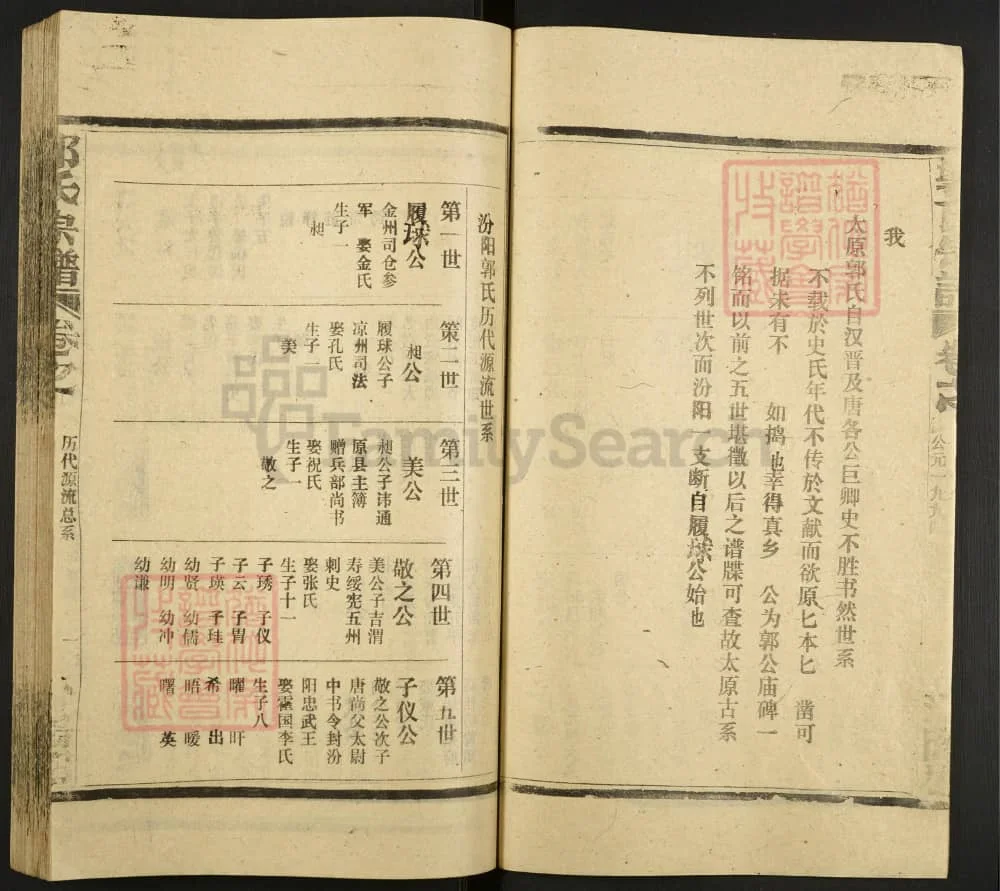 我
太原郭氏自汉晋及唐各公巨卿史不胜书然世系
不载於史氏年代不传於文献而欲原匕本匕 凿可
据未有不 如捣也幸得真乡 公为郭公庙碑一
铭而以前之五世堪徵以后之谱牒可查故太原古系
不列世次而汾阳一支断自履球公始也
公元一九九
汾阳郭氏历代源流世系
第一世
履球公
金州司仓参
军 娶金氏
生子一
昶
第二世
昶公
履球公子
凉州司法
娶孔氏
生子一
美
第三世
美公
昶公子讳通
原县主簿
赠兵部尚书
娶祝氏
生子一
敬之
第四世
敬之公
美公子吉渭
寿绥宪五州
刺史
娶张氏
生子十一
子琇 子仪
子云 子胄
子瑛 子珪
幼贤 幼儒
幼明 幼冲
幼谦
第五世
子仪公
敬之公次子
唐尚父太尉
中书令封汾
阳忠武王
娶霍国李氏
生子八
曜 旰
希 出
晤 暖
曙 英
郭氏宗谱 卷之
历代源流总系
一
FamilySearch